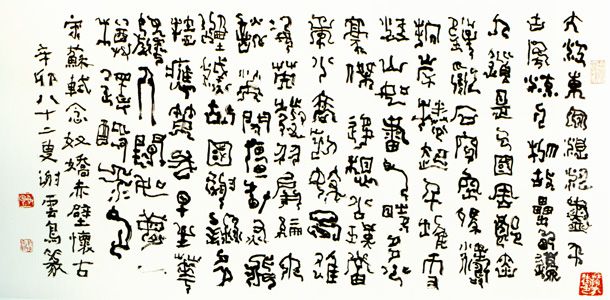 大江東去浪淘盡千
古風流人物故壘西邊
人道是三國周郎赤
壁亂石驚濤
拍岸捲起千堆雪
江山如畫一時多少
豪傑遙想公瑾當
年小喬初嫁了雄
姿英發羽扇綸巾
談笑間灰飛
煙滅故國神遊多
情應笑我早生華
髮人間如夢一
尊還酹江月
宋蘇軾念奴嬌赤壁懷古
辛卯八十二叟謝雲鳥篆